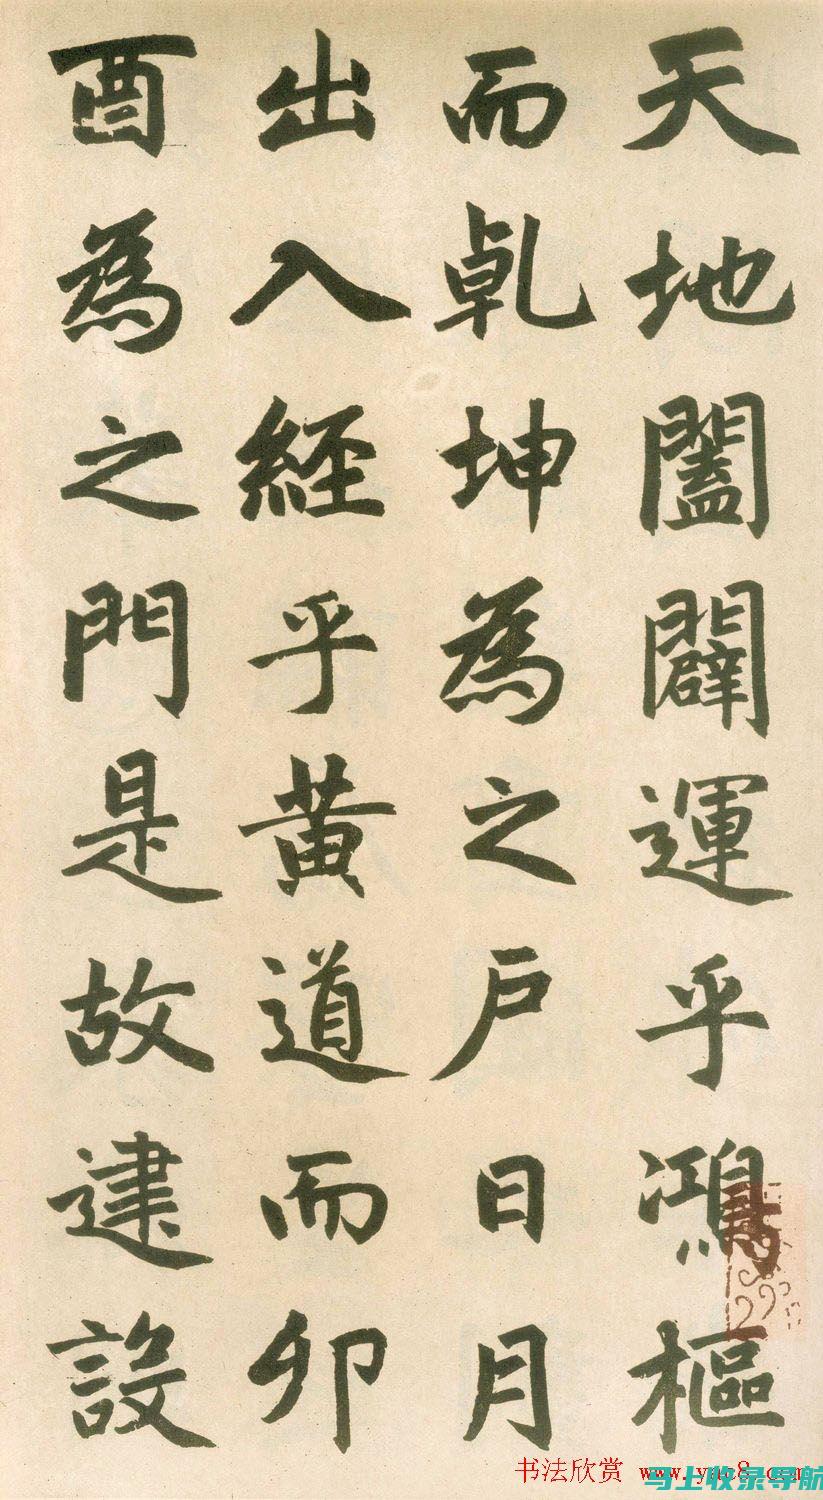 天地闔闢運乎鴻樞
而乹坤為之戶日月
出入經乎黃道而卯
酉為之門是故建設
书法欣赏 www.yac8.com
马上收录导航